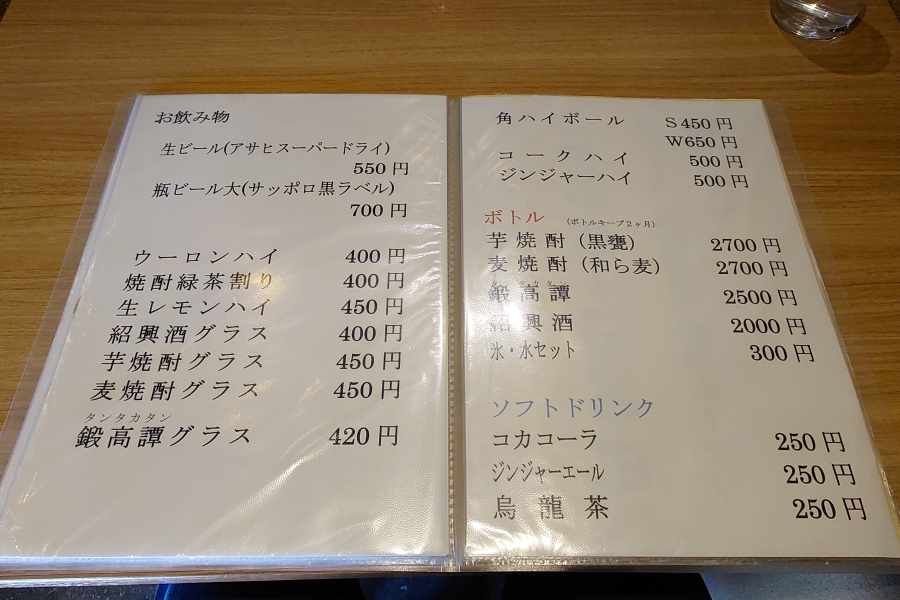 お飲み物
生ビール(アサヒスーパードライ)
550 円
瓶ビール大(サッポロ黒ラベル)
700 円
ウーロンハイ 400 円
焼酎緑茶割り 400 円
生レモンハイ 450 円
紹興酒グラス 400 円
芋焼酎グラス 450 円
麦焼酎グラス 450 円
タンタカタン
鍛高譚グラス 420 円
角ハイボール S 450 円
W650 円
コークハイ 500 円
ジンジャーハイ 500 円
ボトル (ボトルキープ2ヶ月)
芋焼酎(黒甕) 2700 円
麦焼酎(和ら麦) 2700 円
鍛高譚 2500 円
紹興酒 2000 円
氷・水セット 300 円
ソフトドリンク
コカコーラ 250 円
ジンジャーエール 250 円
烏龍茶 250 円